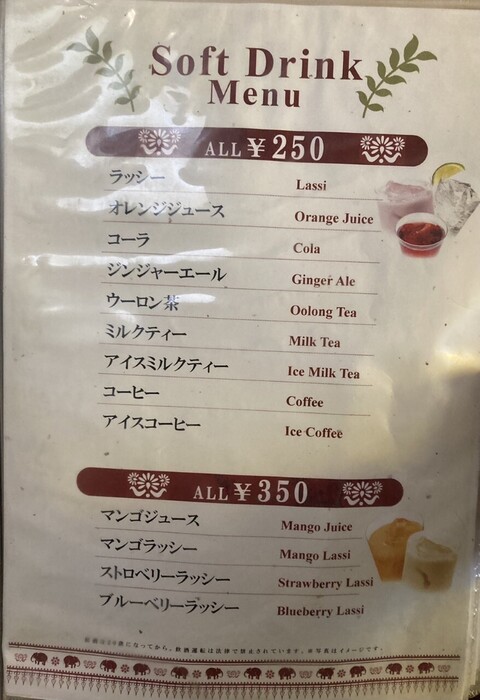 Soft Drink
Menu
ALL ¥250
ラッシー Lassi
オレンジジュース Orange Juice
コーラ Cola
ジンジャーエール Ginger Ale
ウーロン茶 Oolong Tea
ミルクティー Milk Tea
アイスミルクティー Ice Milk Tea
コーヒー Coffee
アイスコーヒー Ice Coffee
ALL ¥350
マンゴジュース Mango Juice
マンゴラッシー Mango Lassi
ストロベリーラッシー Strawberry Lassi
ブルーベリーラッシー Blueberry Lassi
になってから。飲酒運転は法律で禁止されています。※写真はイメージです。